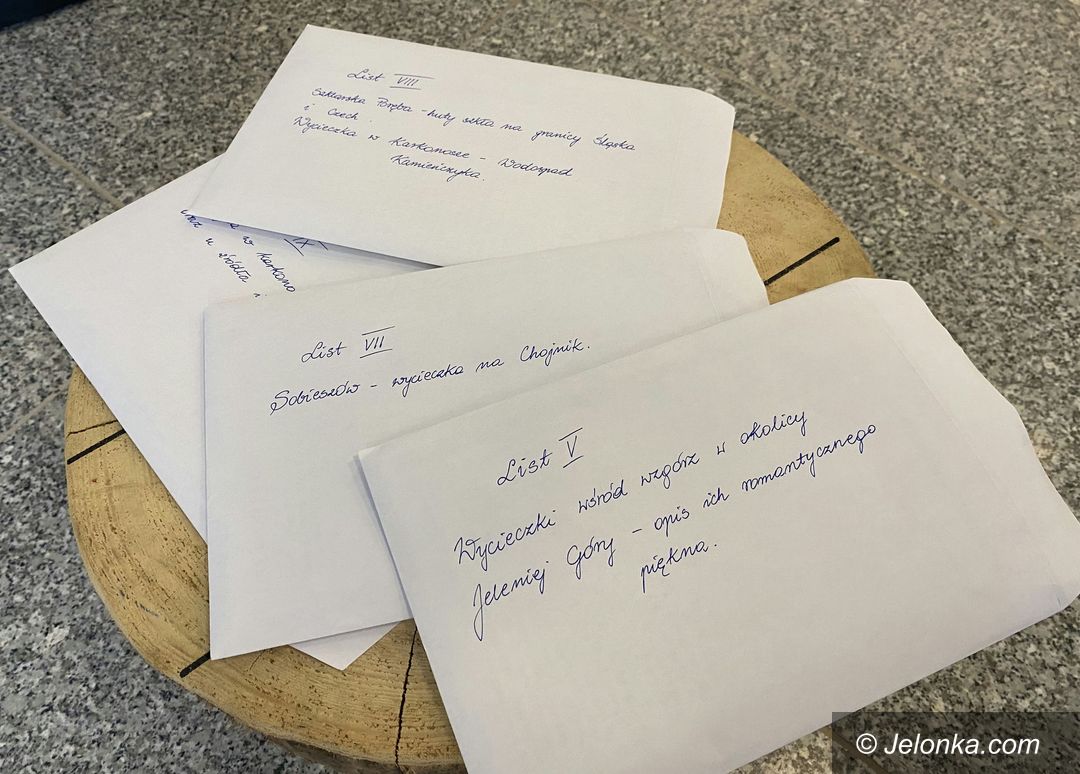 List VIII
Szklarska Poręba - huty szkła na granicy Śląska
i Czech.
Wycieczka w Karkonosze - Wodospad
Kamieńczyka.
IX
w Karkono
u źródła i
List VII
Sobieszów - wycieczka na Chojnik.
List V
Wycieczki wśród wzgórz w okolicy
Jeleniej Góry - opis ich romantycznego
piękna.
© Jelonka.com